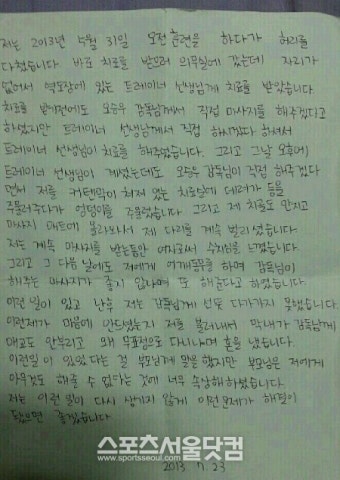 저는 2013년 5월 31일 오전훈련을 하다가 허리를
다쳤습니다 바로 치료를 받으러 의무실에 갔는데 자리가
없어서 역도장에 있는 트레이너 선생님께 치료를 받았습니다.
치료를 받기전에도 오승우 감독님께서 직접 마사지를 해주겠다고
하였지만 트레이너 선생님께서 직접 하시겠다 하셔서
트레이너 선생님이 치료를 해주었습니다. 그리고 그날 오후에
트레이너 선생님이 계셨는데도 오승우 감독님이 직접 해주겠다
면서 저를 커텐막이 쳐져 있는 치료실에 데려가 등을
주물러주다가 엉덩이를 주물렀습니다 그리고 제 치골도 만지고
마사지 매트에 올라오셔서 제 다리를 계속 벌리셨습니다
저는 계속 마사지를 받는동안 여자로써 수치심을 느꼈습니다
그리고 그 다음 날에도 저에게 어깨동무를 하며 감독님이
해주는 마사지가 좋지 않냐며 또 해준다고 하였습니다
이런 일이 있고 난후 저는 감독님께 선뜻 다가가지 못했습니다
이런제가 마음에 안드셨는지 저를 불러내서 막내가 감독님께
애교도 안부리고 왜 무표정으로 다니냐며 혼을 냈습니다
이런일이 있었다는 걸 부모님께 말을 했지만 부모님은 저에게
아무것도 해줄 수 없다는 것에 너무 속상해하셨습니다
저는 이런 일이 다시 생기지 않게 이런문제가 해결이
됐으면 좋겠습니다
2013 7. 23
스포츠서울닷컴
www.sportsseoul.com